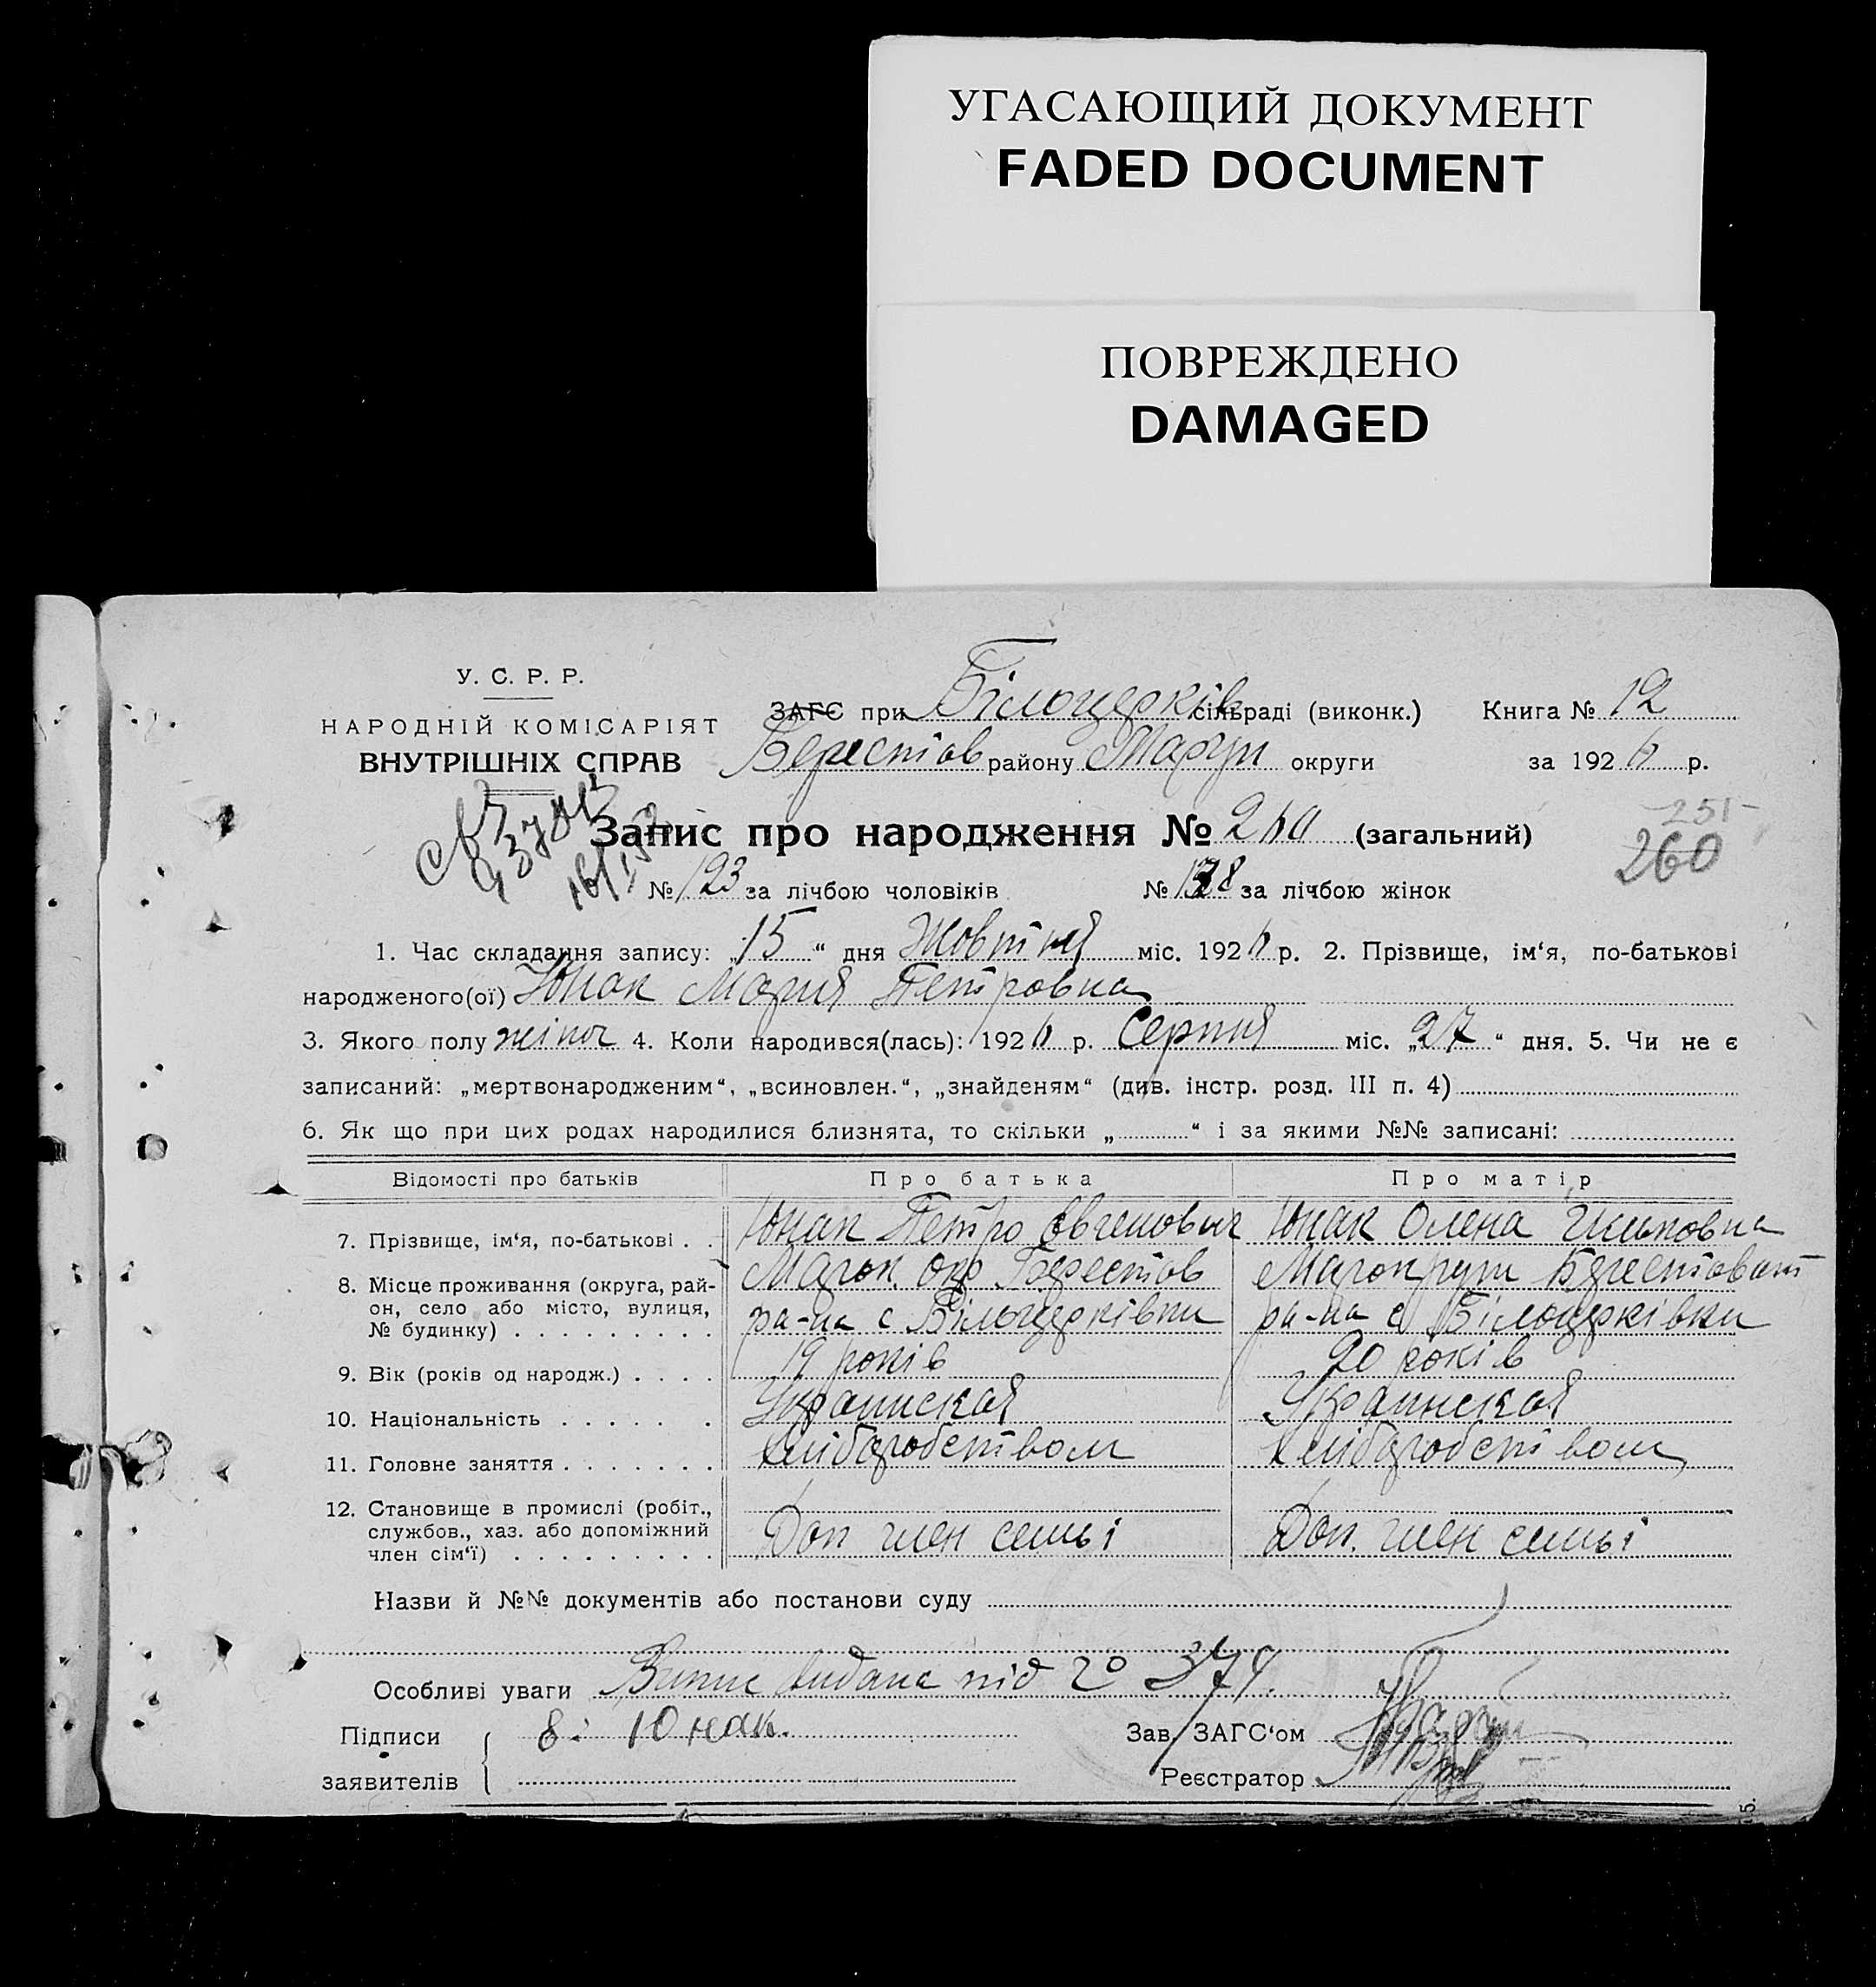 УГАСАЮЩИЙ ДОКУМЕНТ
FADED DOCUMENT
ПОВРЕЖДЕНО
DAMAGED
У. С. Р. Р.
НАРОДНІЙ КОМІСАРІЯТ
ВНУТРІШНІХ СПРАВ
ЗАГС при Білоцерків сільраді (виконк.) Книга № 12
Берестов району Маріуп округи за 1926 р.
Запис про народження № 260 (загальний)
251
260
№ 123 за лічбою чоловіків № 138 за лічбою жінок
1. Час складання запису: „15“ дня Жовтня міс. 1926 р. 2. Прізвище, ім‘я, по-батькові
народженого(ої) Юнак Мария Петровна
3. Якого полу жіноч 4. Коли народився(лась): 1926 р. Серпня міс. „27“ дня. 5. Чи не є
записаний: „мертвонародженим“, „всиновлен.“, „знайденям“ (див. інстр. розд. III п. 4)
6. Як що при цих родах народилися близнята, то скільки „ “ і за якими №№ записані:
Відомості про батьків Про батька Про матір
7. Прізвище, ім‘я, по-батькові . . Юнак Петро Юнак Олена
8. Місце проживання (округа, рай-
он, село або місто, вулиця,
№ будинку) . . . . . . . . .
окр Берестов
ра-на с Білоцерківки ра-на с Білоцерківки
9. Вік (років од народж.) . . . . 19 років 20 років
10. Національність . . . . . . . Украинская Украинская
11. Головне заняття . . . . . . . хліборобством хліборобством
12. Становище в промислі (робіт.,
службов., хаз. або допоміжний
член сім‘ї) . . . . . . . . . Доп член семьі Доп. член семьі
Назви й №№ документів або постанови суду
Особливі уваги Випис видана під № 374.
Підписи
заявителів
Юнак.
Зав. ЗАГС‘ом
Реєстратор